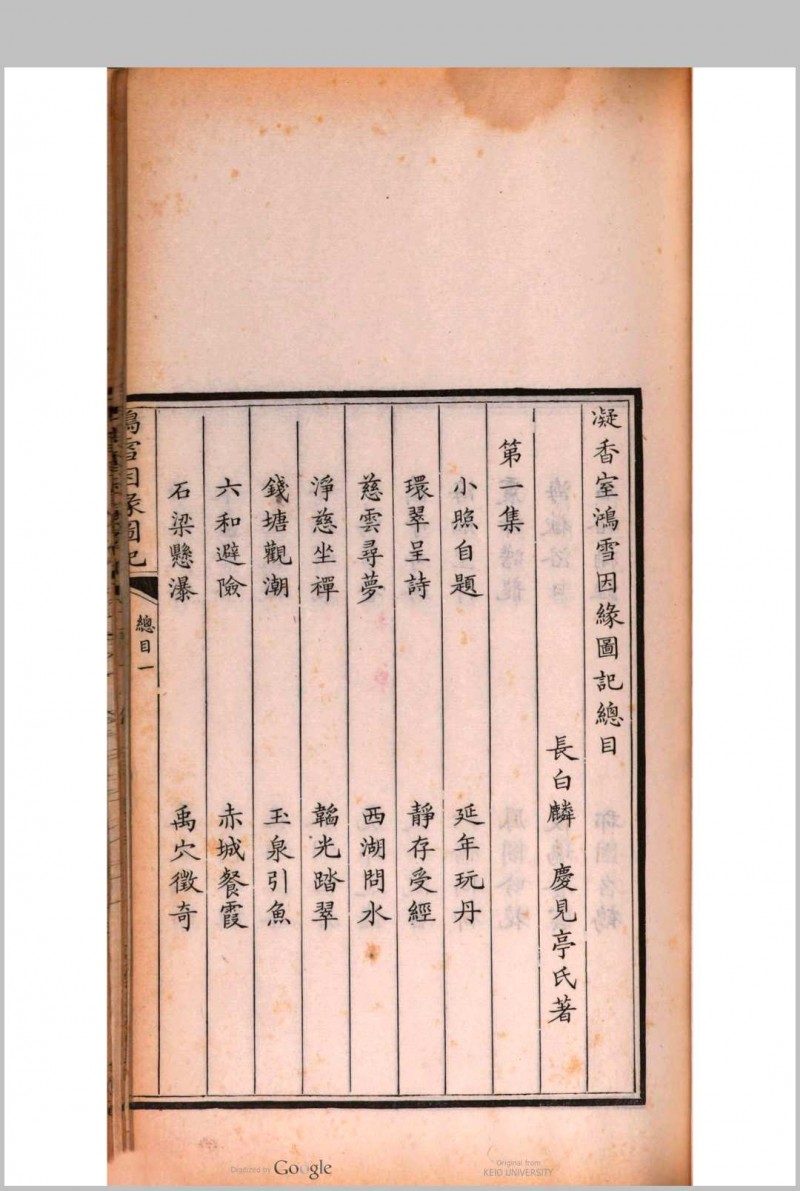 凝香室鴻雪因緣圖記總目
長白麟 慶見亭氏著
第一集
小照自題 延年玩丹
環翠呈詩 靜存受經
慈雲尋夢 西湖問水
淨慈坐禪 韜光踏翠
錢塘觀潮 玉泉引魚
六和避險 赤城餐霞
石梁懸瀑 禹穴徵奇
鴻雪因緣圖記
總目一
Digitized by Google
Original from
KEIO UNIVERSITY